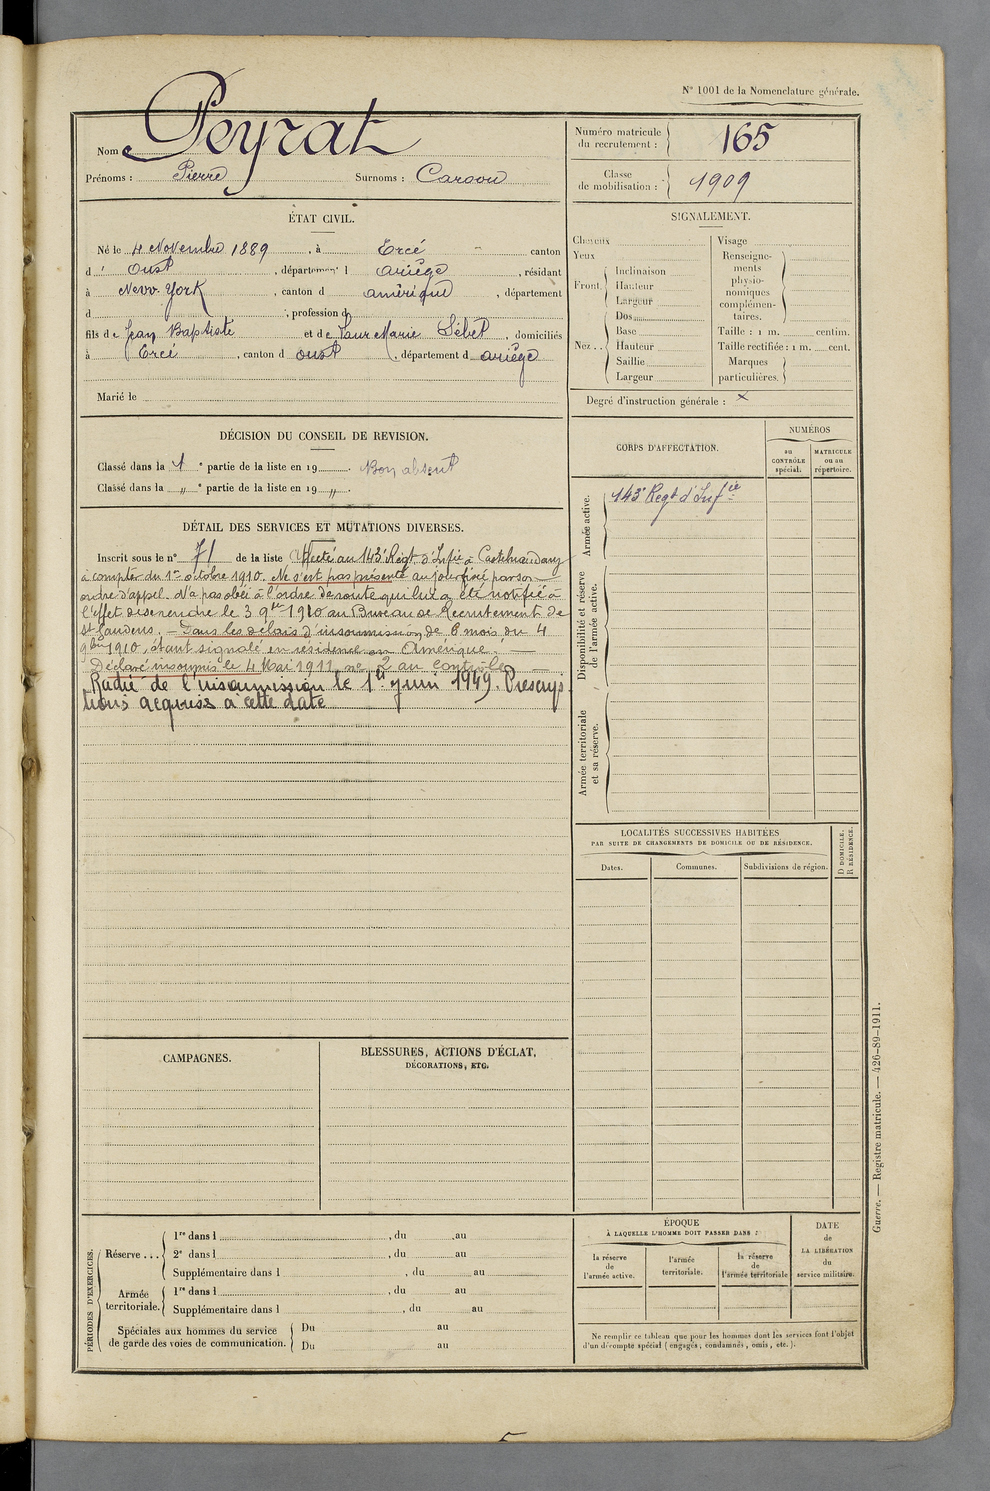 N° 1001 de la Nomenclature générale.
Nom Peyrat
Prénoms : Pierre Surnoms :
Numéro matricule du recrutement : 165
Classe de mobilisation : 1909
ÉTAT CIVIL.
Né le 4 Novembre 1889, à Ercé canton
d' Oust, département d ariège, résidant
à New-York, canton d amérique, département
d , profession d
fils de Jean Baptiste et de Marie , domiciliés
à Ercé, canton d oust, département d ariège
Marié le
SIGNALEMENT.
Cheveux
Yeux
Front.
Inclinaison
Hauteur
Largeur
Nez ..
Dos
Base
Hauteur
Saillie
Largeur
Visage
Renseignements physionomiques complémentaires.
Taille : 1 m. centim.
Taille rectifiée : 1 m. cent.
Marques particulières.
Degré d'instruction générale : x
DÉCISION DU CONSEIL DE REVISION.
Classé dans la 1e partie de la liste en 19 . Bon absent
Classé dans la " e partie de la liste en 19 " .
DÉTAIL DES SERVICES ET MUTATIONS DIVERSES.
Inscrit sous le n° 71 de la liste Affecté au 143e Régt d'Infie à Castelnaudary
à compter du 1er octobre 1910. Ne s'est pas présenté au jour fixé par son
ordre d'appel. N'a pas obéi à l'ordre de route qui lui a été notifié à
l'effet de se rendre le 3 9bre 1910 au Bureau de Recrutement de
St Gaudens. — Dans les délais d'insoumission de 6 mois du 4
9bre 1910, étant signalé en résidence en Amérique. —
Déclaré insoumis le 4 Mai 1911, ne 2 au contrôle —
Radié de l'insoumission le 1er juin 1949. Prescrip
tions acquises à cette date
CORPS D'AFFECTATION.
NUMÉROS
au CONTRÔLE spécial.
MATRICULE ou au répertoire.
Armée active.
143e Regt d'Infie
Disponibilité et réserve de l'armée active.
Armée territoriale et sa réserve.
LOCALITÉS SUCCESSIVES HABITÉES
PAR SUITE DE CHANGEMENTS DE DOMICILE OU DE RÉSIDENCE.
Dates.
Communes.
Subdivisions de région.
D DOMICILE.
R RÉSIDENCE.
CAMPAGNES.
BLESSURES, ACTIONS D'ÉCLAT,
DÉCORATIONS, ETC.
PÉRIODES D'EXERCICES.
Réserve ...
1re dans l , du au
2e dans l , du au
Supplémentaire dans l , du au
Armée territoriale.
1re dans l , du au
Supplémentaire dans l , du au
Spéciales aux hommes du service de garde des voies de communication.
Du au
Du au
ÉPOQUE
À LAQUELLE L'HOMME DOIT PASSER DANS :
la réserve de l'armée active.
l'armée territoriale.
la réserve de l'armée territoriale
DATE DE LA LIBÉRATION du service militaire.
Ne remplir ce tableau que pour les hommes dont les services font l'objet
d'un décompte spécial (engagés, condamnés, omis, etc.).
Guerre. — Registre matricule. — 426-89-1911.